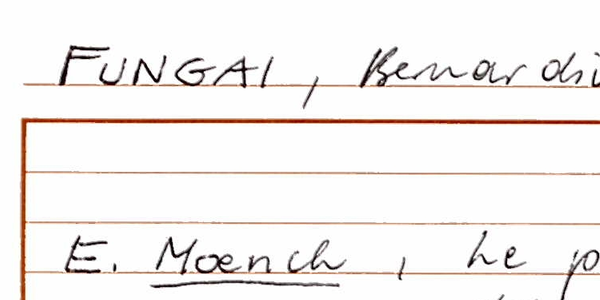 FUNGAI, Bernardi
E. Moench, he p